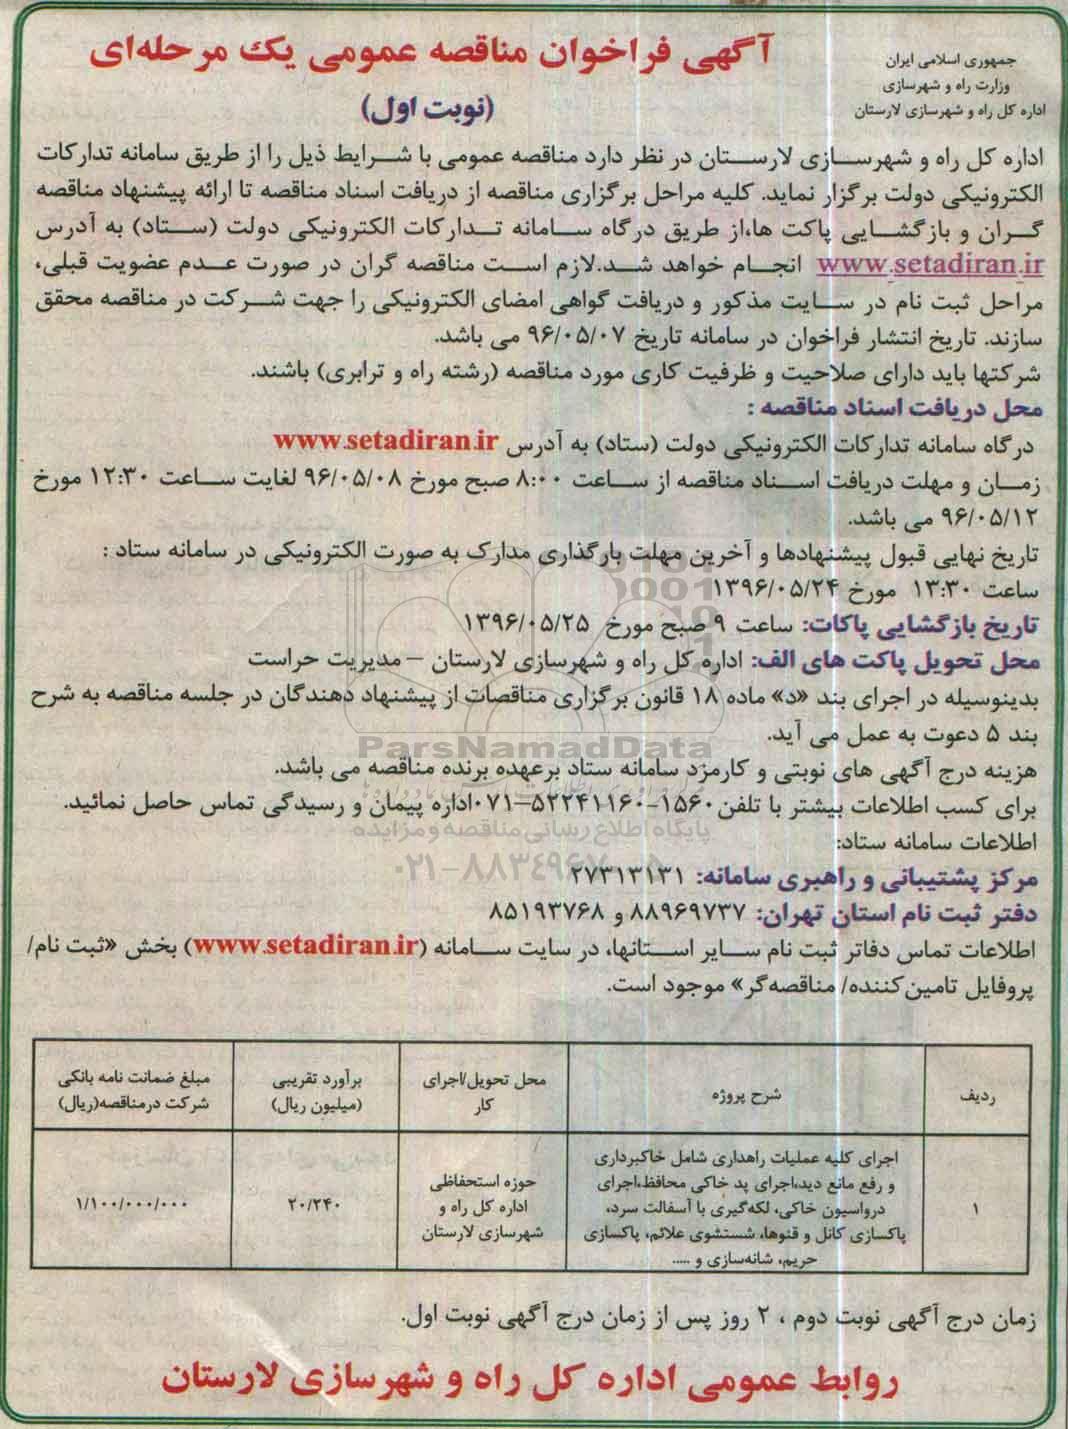 جمهوری اسلامی ایران
وزارت راه و شهرسازی
اداره کل راه و شهرسازی لارستان
آگهی فراخوان مناقصه عمومی یک مرحله‌ای
(نوبت اول)
اداره کل راه و شهرسازی لارستان در نظر دارد مناقصه عمومی با شرایط ذیل را از طریق سامانه تدارکات
الکترونیکی دولت برگزار نماید. کلیه مراحل برگزاری مناقصه از دریافت اسناد مناقصه تا ارائه پیشنهاد مناقصه
گران و بازگشایی پاکت ها،از طریق درگاه سامانه تدارکات الکترونیکی دولت (ستاد) به آدرس
www.setadiran.ir انجام خواهد شد.لازم است مناقصه گران در صورت عدم عضویت قبلی،
مراحل ثبت نام در سایت مذکور و دریافت گواهی امضای الکترونیکی را جهت شرکت در مناقصه محقق
سازند. تاریخ انتشار فراخوان در سامانه تاریخ ۹۶/۰۵/۰۷ می باشد.
شرکتها باید دارای صلاحیت و ظرفیت کاری مورد مناقصه (رشته راه و ترابری) باشند.
محل دریافت اسناد مناقصه :
درگاه سامانه تدارکات الکترونیکی دولت (ستاد) به آدرس www.setadiran.ir
زمان و مهلت دریافت اسناد مناقصه از ساعت ۸:۰۰ صبح مورخ ۹۶/۰۵/۰۸ لغایت ساعت ۱۲:۳۰ مورخ
۹۶/۰۵/۱۲ می باشد.
تاریخ نهایی قبول پیشنهادها و آخرین مهلت بارگذاری مدارک به صورت الکترونیکی در سامانه ستاد :
ساعت ۱۳:۳۰ مورخ ۱۳۹۶/۰۵/۲۴
تاریخ بازگشایی پاکات: ساعت ۹ صبح مورخ ۱۳۹۶/۰۵/۲۵
محل تحویل پاکت های الف: اداره کل راه و شهرسازی لارستان – مدیریت حراست
بدینوسیله در اجرای بند «د» ماده ۱۸ قانون برگزاری مناقصات از پیشنهاد دهندگان در جلسه مناقصه به شرح
بند ۵ دعوت به عمل می آید.
ParsNamadData
هزینه درج آگهی های نوبتی و کارمزد سامانه ستاد برعهده برنده مناقصه می باشد.
برای کسب اطلاعات بیشتر با تلفن ۱۵۶۰-۵۲۲۴۱۱۶۰–۰۷۱ اداره پیمان و رسیدگی تماس حاصل نمائید.
پایگاه اطلاع رسانی مناقصه و مزایده
اطلاعات سامانه ستاد:
مرکز پشتیبانی و راهبری سامانه: ۲۷۳۱۳۱۳۱
دفتر ثبت نام استان تهران: ۸۸۹۶۹۷۳۷ و ۸۵۱۹۳۷۶۸
اطلاعات تماس دفاتر ثبت نام سایر استانها، در سایت سامانه (www.setadiran.ir) بخش «ثبت نام/
پروفایل تامین‌کننده/ مناقصه‌گر» موجود است.
ردیف | شرح پروژه | محل تحویل/اجرای کار | برآورد تقریبی (میلیون ریال) | مبلغ ضمانت نامه بانکی شرکت درمناقصه(ریال)
۱ | اجرای کلیه عملیات راهداری شامل خاکبرداری
و رفع مانع دید،اجرای پد خاکی محافظ،اجرای
درواسیون خاکی، لکه‌گیری با آسفالت سرد،
پاکسازی کانل و قنوها، شستشوی علائم، پاکسازی
حریم، شانه‌سازی و ..... | حوزه استحفاظی
اداره کل راه و
شهرسازی لارستان | ۲۰/۲۴۰ | ۱/۱۰۰/۰۰۰/۰۰۰
زمان درج آگهی نوبت دوم ، ۲ روز پس از زمان درج آگهی نوبت اول.
روابط عمومی اداره کل راه و شهرسازی لارستان